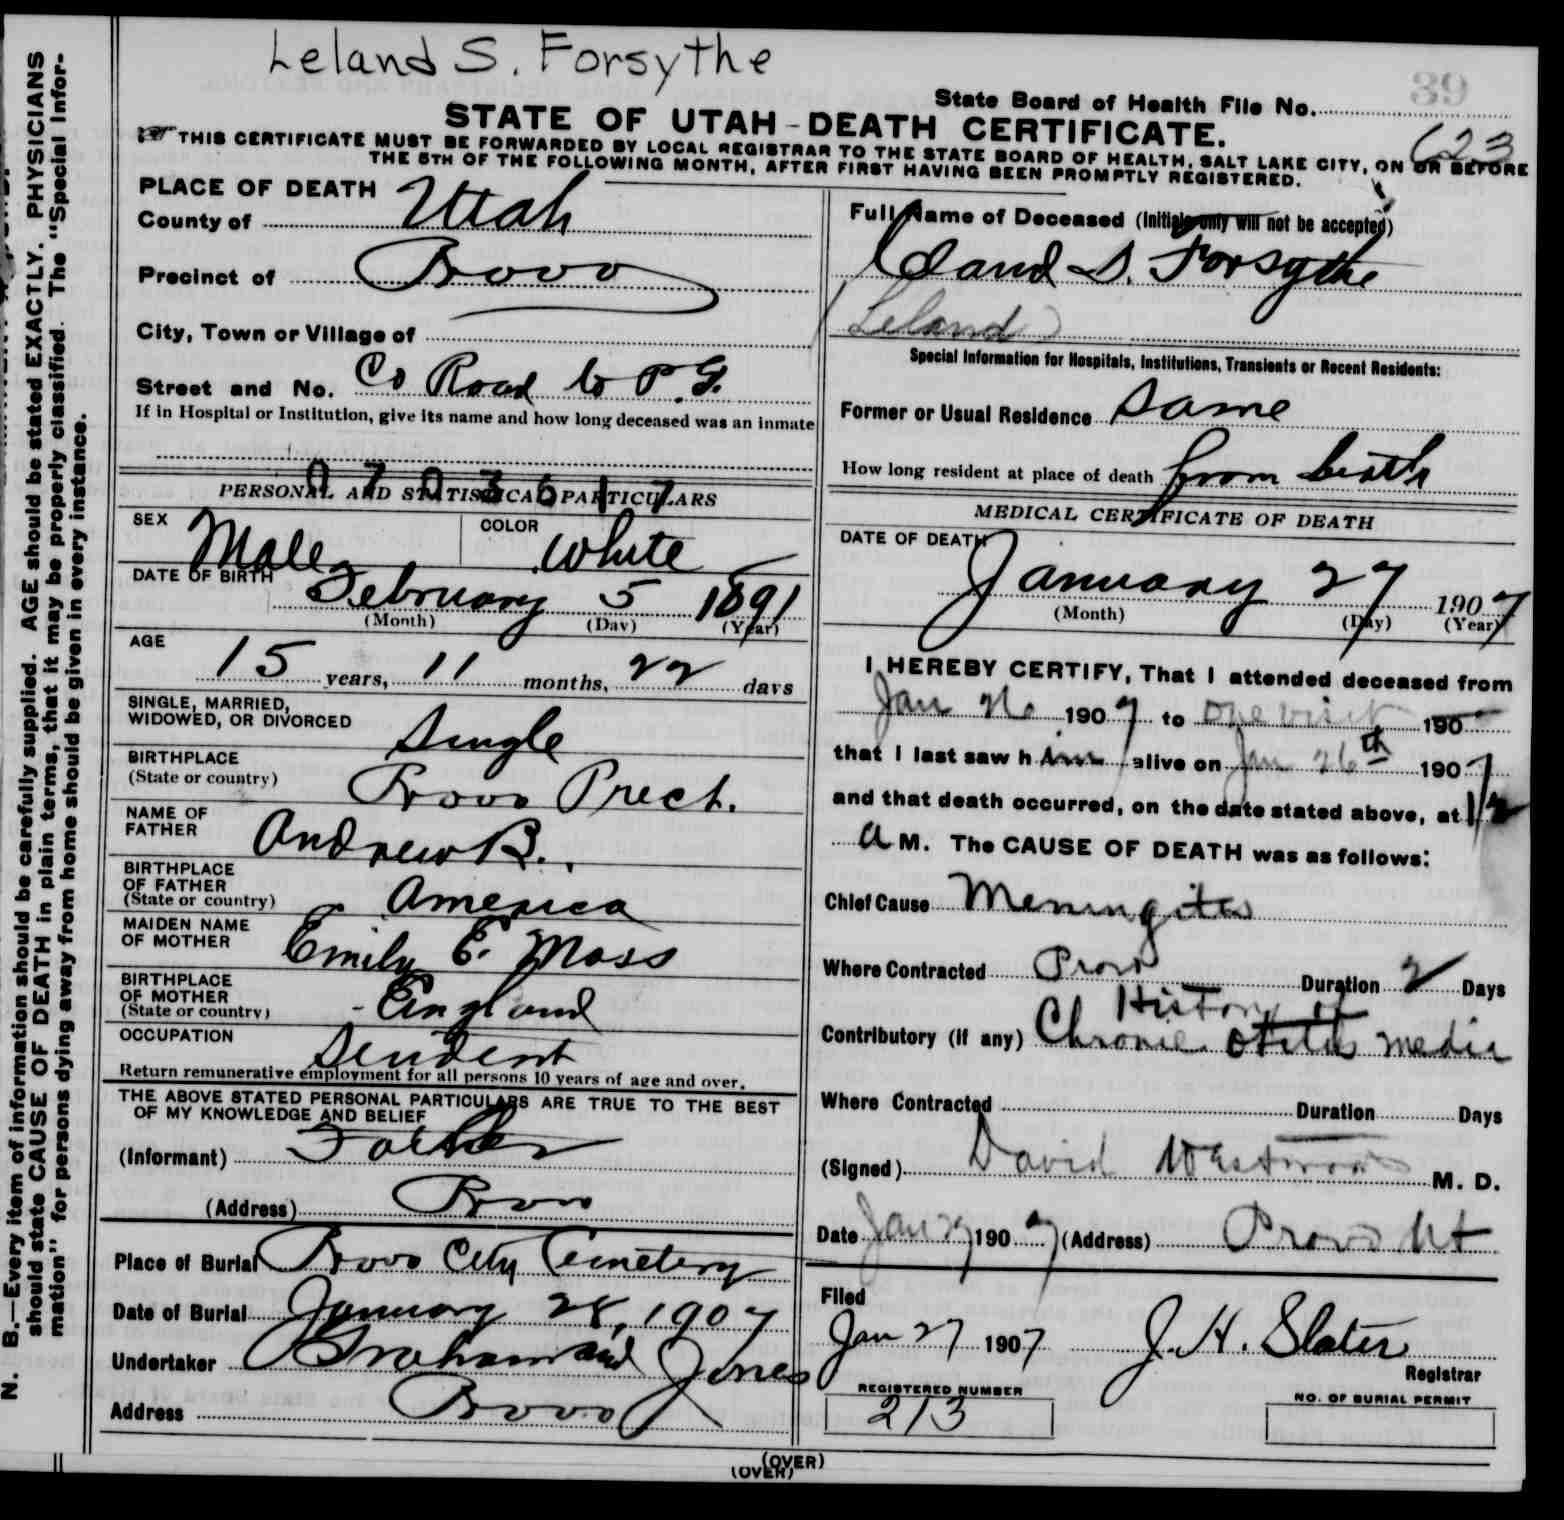 Leland S. Forsythe
39
State Board of Health File No.
STATE OF UTAH-DEATH CERTIFICATE.
623
THIS CERTIFICATE MUST BE FORWARDED BY LOCAL REGISTRAR TO THE STATE BOARD OF HEALTH, SALT LAKE CITY, ON OR BEFORE
THE 5TH OF THE FOLLOWING MONTH, AFTER FIRST HAVING BEEN PROMPTLY REGISTERED.
PLACE OF DEATH
County of Utah
Precinct of Provo
City, Town or Village of
Street and No. Co Road to P.G.
If in Hospital or Institution, give its name and how long deceased was an inmate
0703617
PERSONAL AND STATISTICAL PARTICULARS
SEX Male COLOR White
DATE OF BIRTH February 5 1891
(Month) (Day) (Year)
AGE
15 years, 11 months, 22 days
SINGLE, MARRIED,
WIDOWED, OR DIVORCED Single
BIRTHPLACE
(State or country) Provo Prect.
NAME OF
FATHER Andrew B.
BIRTHPLACE
OF FATHER
(State or country) America
MAIDEN NAME
OF MOTHER Emily E. Moss
BIRTHPLACE
OF MOTHER
(State or country) England
OCCUPATION Student
Return remunerative employment for all persons 10 years of age and over.
THE ABOVE STATED PERSONAL PARTICULARS ARE TRUE TO THE BEST
OF MY KNOWLEDGE AND BELIEF
(Informant) Father
(Address) Provo
Place of Burial Provo City Cemetery
Date of Burial January 28, 1907
Undertaker Graham and Jones
Address Provo
Full Name of Deceased (Initials only will not be accepted)
Leland S. Forsythe
(Leland)
Special Information for Hospitals, Institutions, Transients or Recent Residents:
Former or Usual Residence Same
How long resident at place of death from birth
MEDICAL CERTIFICATE OF DEATH
DATE OF DEATH
January 27 1907
(Month) (Day) (Year)
I HEREBY CERTIFY, That I attended deceased from
Jan 26 1907 to one visit 190
that I last saw him alive on Jan 26th 1907
and that death occurred, on the date stated above, at
a M. The CAUSE OF DEATH was as follows:
Chief Cause Meningitis
Where Contracted Provo Duration 2 Days
History of
Contributory (if any) Chronic otitis media
Where Contracted Duration Days
(Signed) David Westwood M. D.
Date Jan 27 1907 (Address) Provo Ut
Filed
Jan 27 1907 J. H. Slater
Registrar
REGISTERED NUMBER
213
NO. OF BURIAL PERMIT
(OVER)
(OVER)
N. B.—Every item of information should be carefully supplied. AGE should be stated EXACTLY. PHYSICIANS
should state CAUSE OF DEATH in plain terms, that it may be properly classified. The "Special Infor-
mation" for persons dying away from home should be given in every instance.